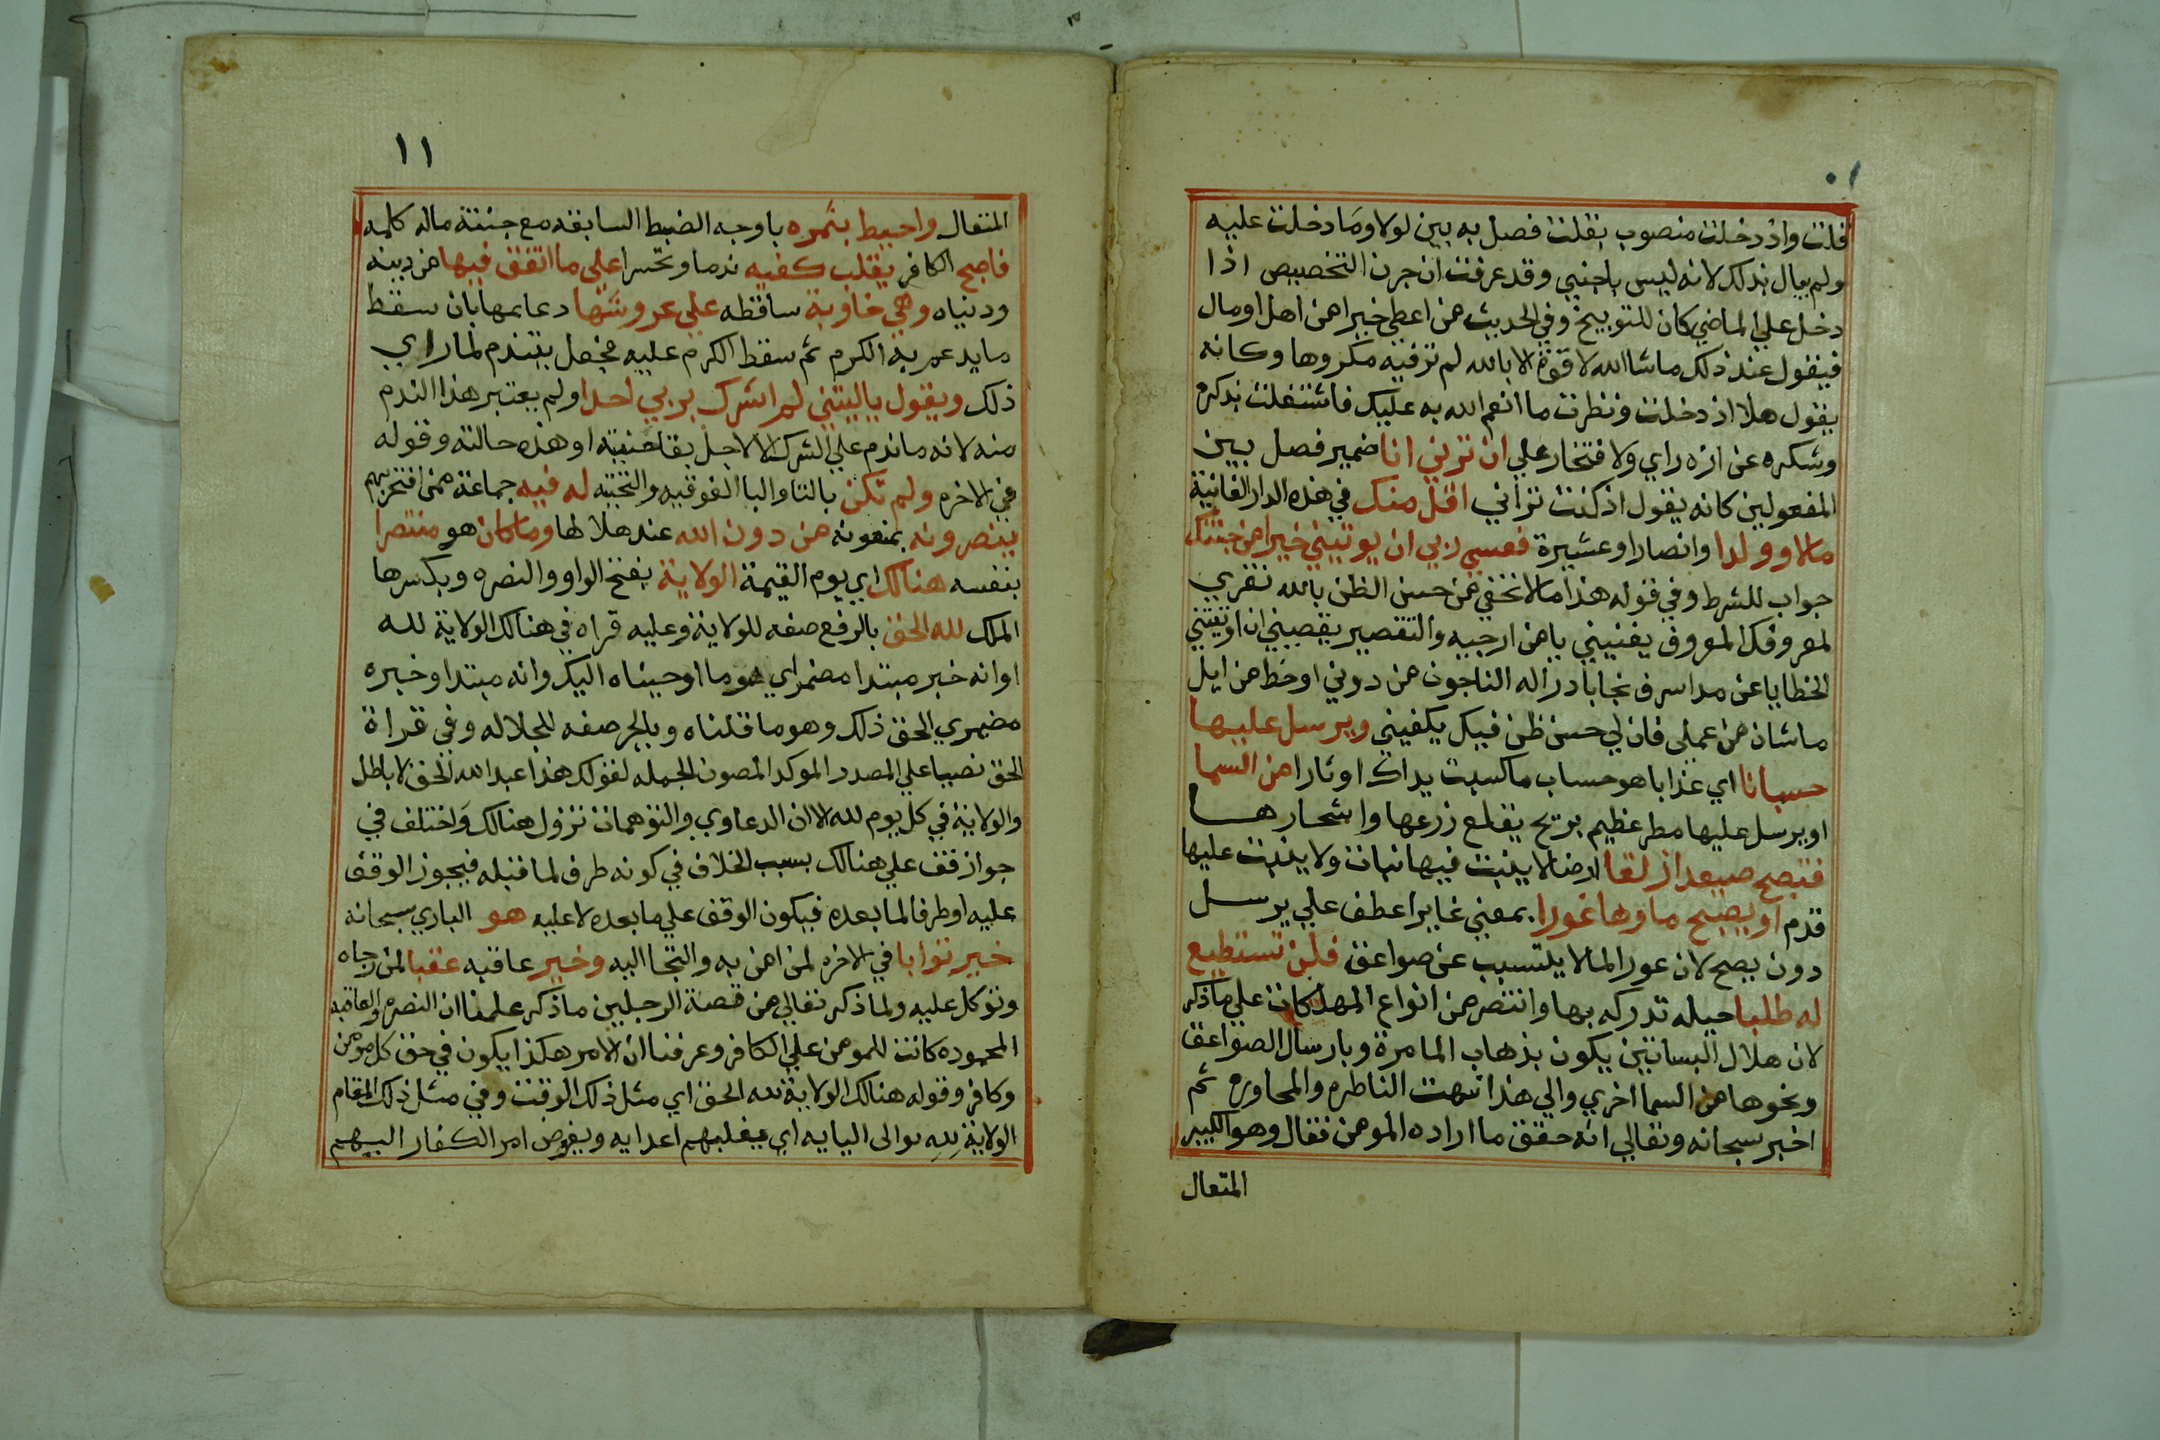 ١٠
قلت واذ دخلت منصوب بقلت فصل به بين لولا وما دخلت عليه
ولم يبال بذلك لانه ليس باجنبي وقد عرفت ان حرف التخصيص اذا
دخل علي الماضي كان للتوبيخ وفي الحديث من اعطي خيرا من اهل او مال
فيقول عند ذلك ماشا الله لا قوة الا بالله لم تر فيه مكروها وكانه
يقول هلا اذ دخلت ونظرت ما انعم الله به عليك فاشتغلت بذكره
وشكره عن ازه راي ولافتخار علي ان ترني انا ضمير فصل بين
المفعولين كانه يقول اذ كنت تراني اقل منك في هذه الدار الفانية
مالا وولدا وانصارا وعشيرة فعسي ربي ان يوتيني خيرا من جنتك
جواب للشرط وفي قوله هذا ما لا تخفي من حسن الظن بالله تقربي
لمعروفك المعروف يغنيني يا من ارجيه والتقصير يقصيني ان اوثقتني
الخطايا عن مدا سرف نجا بادراله الناجون من دوني او خط من ايل
ماشان من عملي فان لي حسن ظن فيك يكفيني ويرسل عليها
حسبانا اي عذابا هو حساب ماكسبت يداك او نارا من السما
او يرسل عليها مطر عظيم بريح يقلع زرعها واشجارها
فتصبح صعيدا زلقا ارضا لا ينبت فيها نبات ولا يثبت عليها
قدم او يصبح ماوها غورا بمعني غايرا عطف علي يرسل
دون يصبح لان غور الما لا يتسبب عن صواعق فلن تستطيع
له طلبا حيله تدركه بها وانتصر من انواع المهلكات علي ماذكر
لان هلال البساتين يكون بذهاب الما مرة وبارسال الصواعق
ونحوها من السما اخري والي هذا تنبهت الناظره والمحاوره ثم
اخبر سبحانه وتعالي انه حقق ما اراده المومن فقال وهو الكبير
المتعال
١١
المتعال واحيط بثمره باوجه الضبط السابقه مع جنته ماله كلمه
فاصبح الكافر يقلب كفيه ندما وتحسرا علي ما انفق فيها من دينه
ودنياه وهي خاوية ساقطه علي عروشها دعايمها بان سقط
مايدعم به الكرم ثم سقط الكرم عليه فجعل يتندم لما راي
ذلك ويقول ياليتني لم اشرك بربي احدا ولم يعتبر هذا الندم
منه لانه ماندم علي الشرك الا لاجل بقا جنته او هذه حالته وقوله
في الاخره ولم تكن بالتا واليا الفوقيه والتحتيه له فيه جماعة ممن افتخر بهم
ينصرونه يمنعونه من دون الله عند هلاكها وماكان هو منتصرا
بنفسه هنالك اي يوم القيمة الولاية بفتح الواو والنصره وبكسرها
الملك لله الحق بالرفع صفه للولاية وعليه قراه في هنالك الولاية لله
او انه خبر مبتدا مضمر اي هو ما اوحيناه اليك وانه مبتدا وخبره
مضمر اي الحق ذلك وهو ما قلناه وبالجر صفه للجلاله وفي قراة
الحق نصبا علي المصدر الموكد لمضمون الجمله لقولك هذا عبد الله الحق لا باطل
والولاية في كل يوم لله لا ان الدعاوي والتوهمات تزول هنالك واختلف في
جواز قف علي هنالك بسبب الخلاف في كونه طرف لما قبله فيجوز الوقف
عليه او طرفا لما بعده فيكون الوقف علي ما بعده لا عليه هو الباري سبحانه
خير ثوابا في الاخره لمن امن به والتجا اليه وخير عاقبه عقبا لمن رجاه
وتوكل عليه ولما ذكر تعالي من قصة الرجلين ماذكر علمنا ان النصره والعاقبه
المحموده كانت للمومن علي الكافر وعرفنا ان الامر هكذا يكون في حق كل مومن
وكافر وقوله هنالك الولاية لله الحق اي مثل ذلك الوقت وفي مثل ذلك المقام
الولاية لله يوالي اليايه اي يغلبهم اعدايه ويفوض امر الكفار اليهم